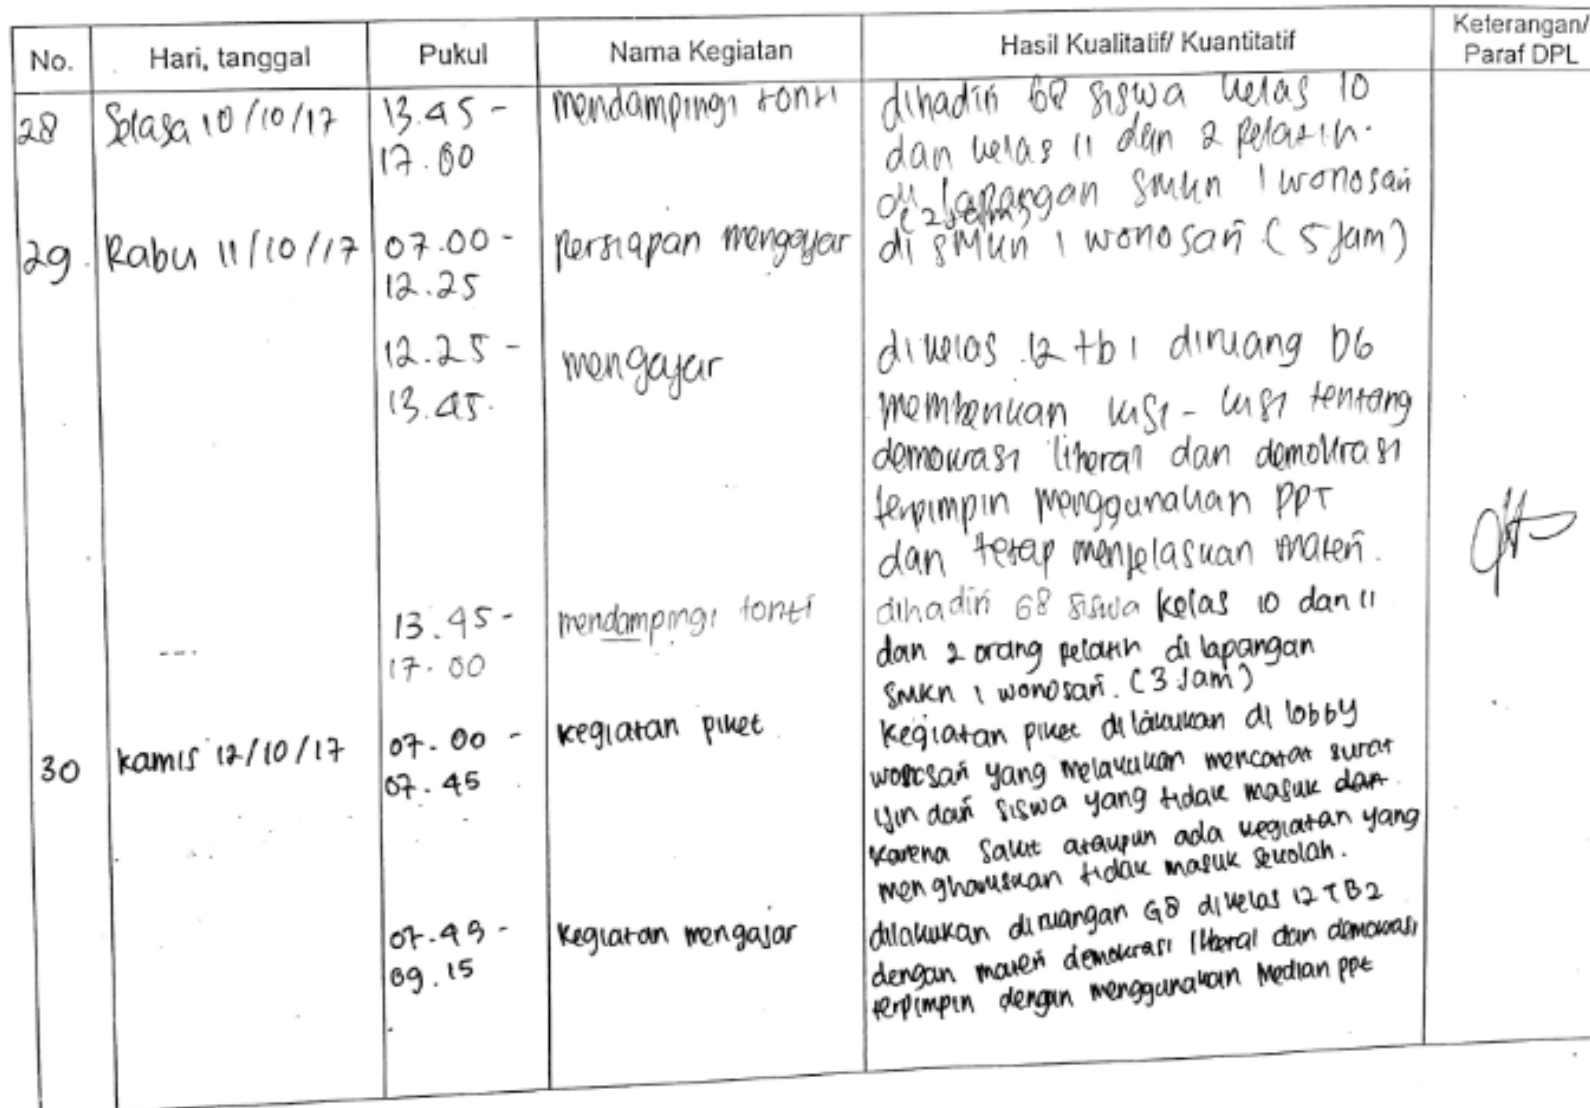 No. Hari, tanggal Pukul Nama Kegiatan Hasil Kualitatif/ Kuantitatif Keterangan/ Paraf DPL
28 Selasa 10/10/17 13.45 - mendampingi tonti dihadiri 68 siswa kelas 10
17.00 dan kelas 11 dan 2 pelatih.
di lapangan SMKN 1 wonosari
(2 jam)
29. Rabu 11/10/17 07.00 - persiapan mengajar di SMKN 1 wonosari (5 jam)
12.25
12.25 - mengajar dikelas 12 tb 1 diruang D6
13.45. memberikan kisi - kisi tentang
demokrasi liberal dan demokrasi
terpimpin menggunakan PPT
dan tetap menjelaskan materi.
13.45 - mendampingi tonti dihadiri 68 siswa kelas 10 dan 11
17.00 dan 2 orang pelatih di lapangan
SMKN 1 wonosari. (3 Jam)
30 kamis 12/10/17 07.00 - kegiatan piket kegiatan piket dilakukan di lobby
07.45 yang melakukan mencatat surat
ijin dari siswa yang tidak masuk dan
karena sakit ataupun ada kegiatan yang
mengharuskan tidak masuk sekolah.
07.45 - kegiatan mengajar dilakukan diruangan G8 dikelas 12 TB2
09.15 dengan materi demokrasi liberal dan demokrasi
terpimpin dengan menggunakan Median ppt